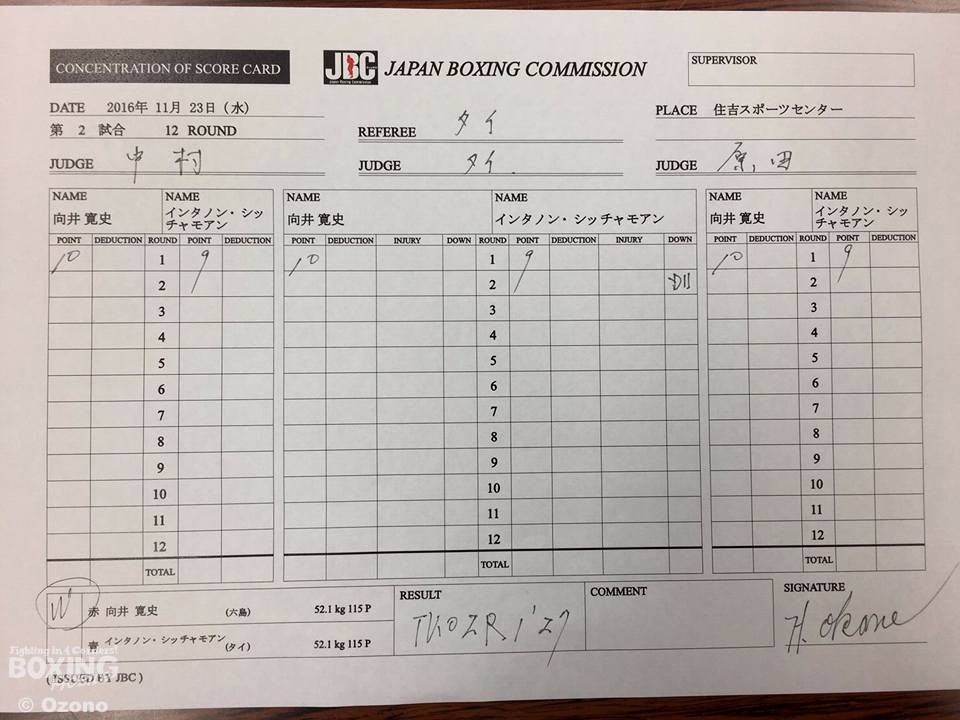 CONCENTRATION OF SCORE CARD
JBC JAPAN BOXING COMMISSION
SUPERVISOR
DATE 2016年 11月 23日 (水)
PLACE 住吉スポーツセンター
第 2 試合 12 ROUND
REFEREE タイ
JUDGE 中村
JUDGE タイ.
JUDGE 原田
NAME NAME NAME NAME NAME NAME
向井 寛史 インタノン・シッチャモアン 向井 寛史 インタノン・シッチャモアン 向井 寛史 インタノン・シッチャモアン
POINT DEDUCTION ROUND POINT DEDUCTION POINT DEDUCTION INJURY DOWN ROUND POINT DEDUCTION INJURY DOWN POINT DEDUCTION ROUND POINT DEDUCTION
10 1 9 10 1 9 10 1 9
2 2 2
3 3 3
4 4 4
5 5 5
6 6 6
7 7 7
8 8 8
9 9 9
10 10 10
11 11 11
12 12 12
TOTAL TOTAL TOTAL
W 赤 向井 寛史 (六島) 52.1 kg 115 P
青 インタノン・シッチャモアン (タイ) 52.1 kg 115 P
RESULT
TKO 2R 1'27
COMMENT
SIGNATURE
H. Okane
(ISSUED BY JBC)
Fighting in 4 Corners!
BOXING
© Ozono